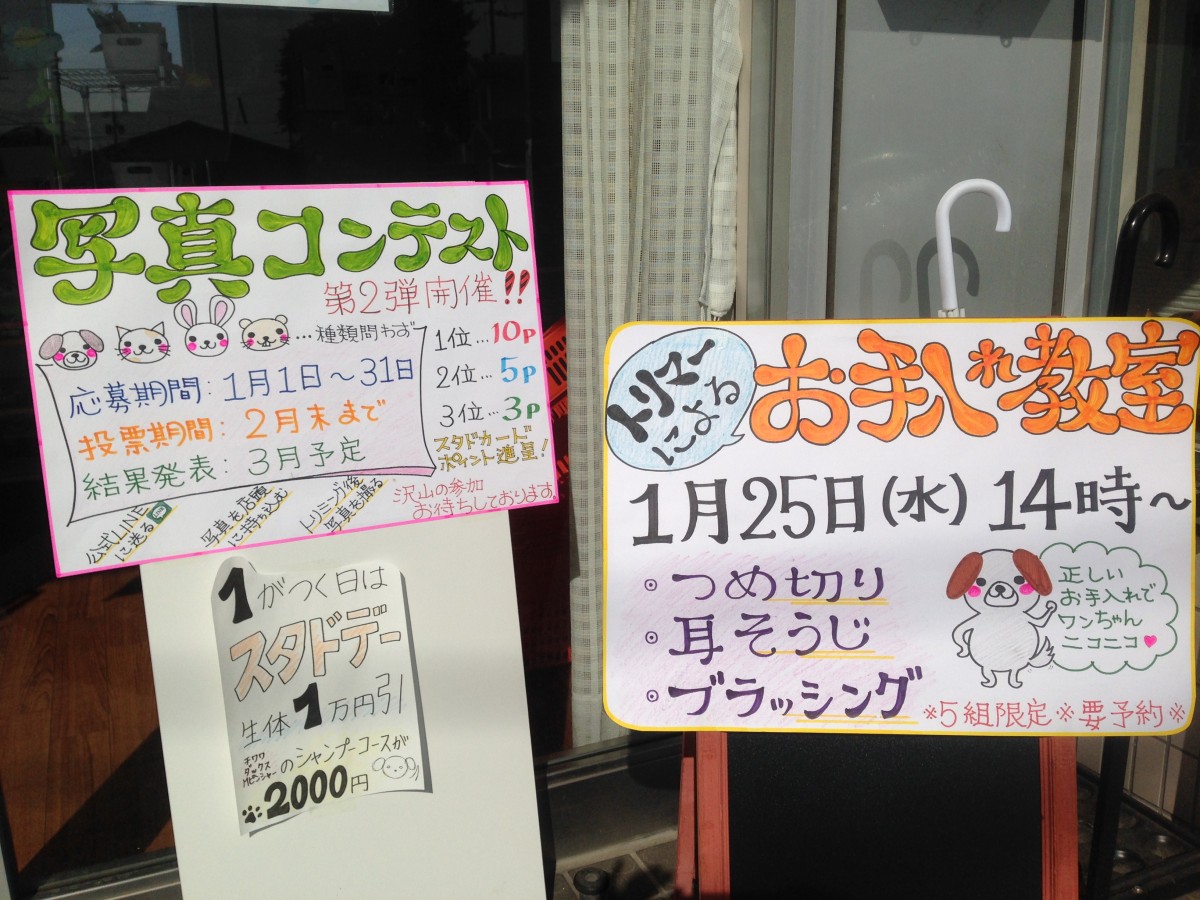 写真コンテスト
第2弾開催!!
…種類問わず
応募期間:1月1日~31日
投票期間:2月末まで
結果発表:3月予定
1位…10p
2位…5p
3位…3p
スタドカード
ポイント進呈!
公式LINE
に送る
写真を店頭
に持ち込む
トリミング後
写真を撮る
沢山の参加
お待ちしております
1がつく日は
スタドデー
生体1万円引
チワワ
ダックス
Mピンシャー
のシャンプーコースが
2000円
トリマー
による
お手入れ教室
1月25日(水)14時~
つめ切り
耳そうじ
ブラッシング
正しい
お手入れで
ワンちゃん
ニコニコ♥
※5組限定※要予約※